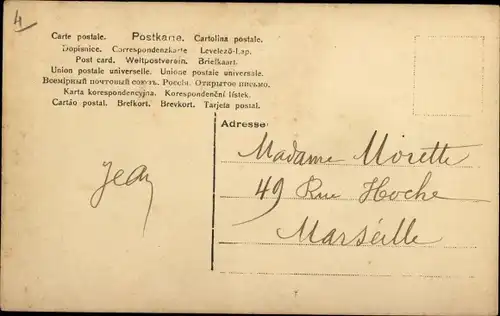 4
Carte postale. Postkarte. Cartolina postale.
Dopisnice. Correspondenzkarte Levelező-Lap.
Post card. Weltpostverein. Briefkaart.
Union postale universelle. Unione postale universale.
Всемірный почтовый союзъ. Россія. Открытое письмо.
Karta korespondencyjna. Korespondenční lístek.
Cartão postal. Brefkort. Brevkort. Tarjeta postal.
Adresse:
Madame Morette
49 Rue Hoche
Marséille
Jean